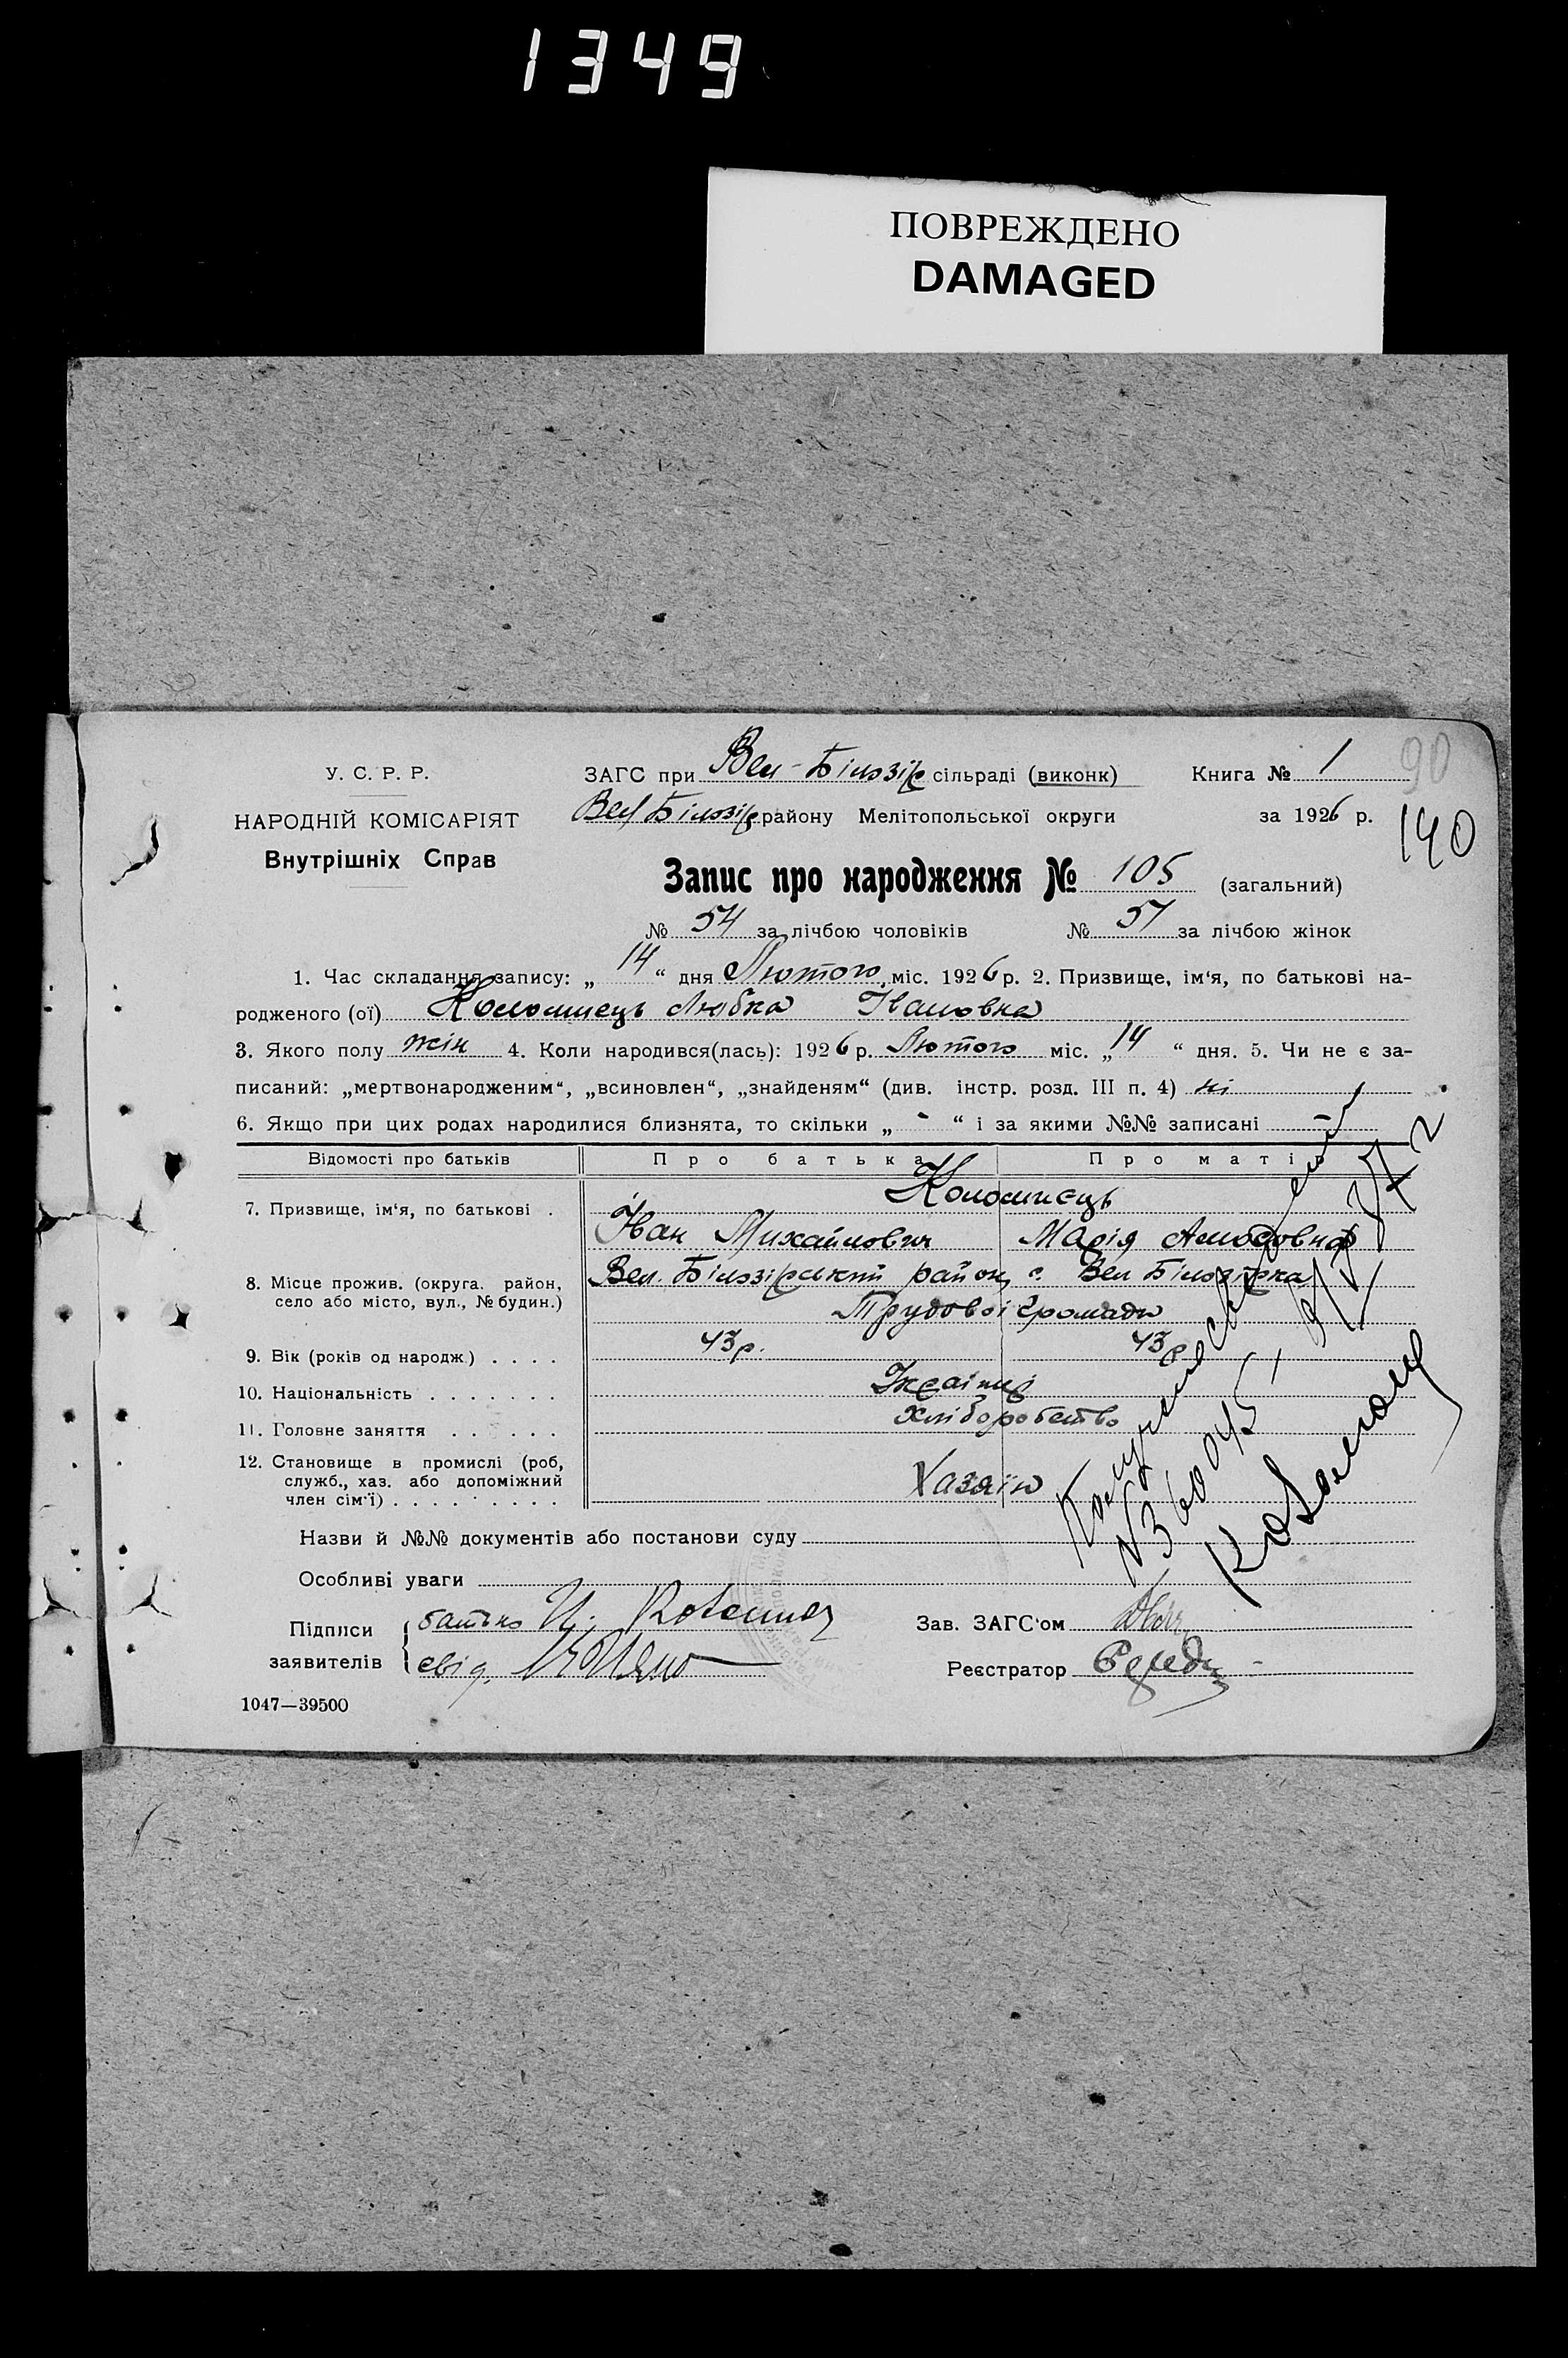 1349
ПОВРЕЖДЕНО
DAMAGED
90
140
У. С. Р. Р.
НАРОДНІЙ КОМІСАРІЯТ
Внутрішніх Справ
ЗАГС при Вел-Білозір сільраді (виконк) Книга № 1
Вел Білозір району Мелітопольської округи за 1926 р.
Запис про народження № 105 (загальний)
№ 54 за лічбою чоловіків № 51 за лічбою жінок
1. Час складання запису: „ 14 “ дня Лютого міс. 1926 р. 2. Призвище, ім‘я, по батькові на-
родженого (ої) Коломиець Любка Івановна
3. Якого полу жін 4. Коли народився(лась): 1926 р. Лютого міс. „ 14 “ дня. 5. Чи не є за-
писаний: „мертвонародженим“, „всиновлен“, „знайденям“ (див. інстр. розд. III п. 4) ні
6. Якщо при цих родах народилися близнята, то скільки „ - “ і за якими №№ записані -
Відомості про батьків Про батька Про матір
7. Призвище, ім‘я, по батькові . Коломиєць
Іван Михайлович Марія
8. Місце прожив. (округа. район, село або місто, вул., № будин.) Вел. Білозірський район, с. Вел Білозірка
Трудової Громади
9. Вік (років од народж) . . . . 43 р. 43 р
10. Національність . . . . . . . Українці
11. Головне заняття . . . . . . хліборобство
12. Становище в промислі (роб, служб., хаз. або допоміжний член сім‘ї) . . . . . . . . . Хазяїн
Назви й №№ документів або постанови суду
Особливі уваги
Підписи заявителів
батько И.
свід.
Зав. ЗАГС‘ом
Реєстратор
1047—39500